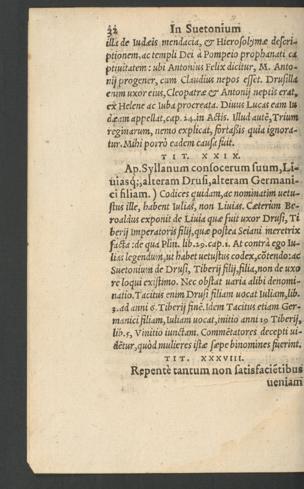 32 In Suetonium
illa de Iudæis mendacia, & Hierosolymæ descri-
ptionem, ac templi Dei à Pompeio prophanati ca
ptiuitatem: ubi Antonius Felix dicitur, M. Anto-
nij progener, cum Claudius nepos esset. Drusilla
enim uxor eius, Cleopatræ & Antonij neptis erat,
ex Helene ac Iuba procreata. Diuus Lucas eam Iu
dæam appellat, cap. 24. in Actis. Illud autẽ, Trium
reginarum, nemo explicat, fortaßis quia ignora-
tur. Mihi porrò eadem causa fuit.
TIT. XXIX.
Ap. Syllanum consocerum suum, Li-
uiasq́;, alteram Drusi, alteram Germani-
ci filiam.) Codices quidam, ac nominatim uetu-
stus ille, habent Iulias, non Liuias. Cæterùm Be-
roaldus exponit de Liuia quæ fuit uxor Drusi, Ti
berij Imperatoris filij, quæ postea Seiani meretrix
facta: de qua Plin. lib. 29. cap. 1. At contrà ego Iu-
lias legendum, ut habet uetustus codex, cõtendo: ac
Suetonium de Drusi, Tiberij filij, filia, non de uxo
re loqui existimo. Nec obstat uaria alibi denomi-
natio. Tacitus enim Drusi filiam uocat Iuliam, lib.
3. ad anni 6. Tiberij finẽ. Idem Tacitus etiam Ger-
manici filiam, Iuliam uocat, initio anni 19 Tiberij,
lib. 5, Vinitio iunctam. Commẽtatores decepti ui-
dẽtur, quòd mulieres istæ sæpe binomines fuerint.
TIT. XXXVIII.
Repentè tantum non satisfaciẽtibus
ueniam